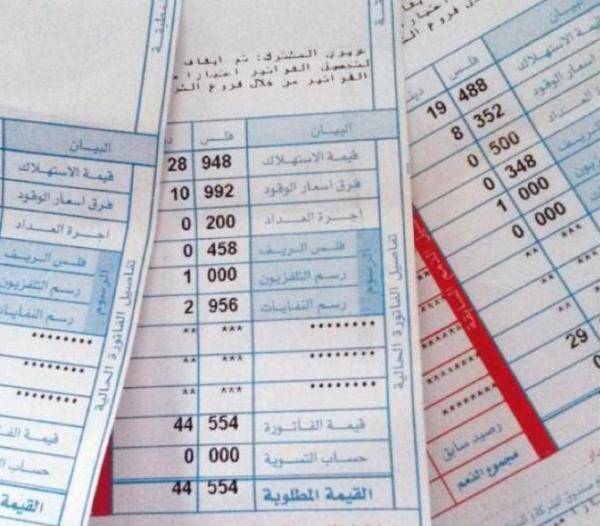 عزيزي المشترك: تم ايقاف
لتحصيل الفواتير اعتبارا
الفواتير من خلال فروع
البيان فلس
قيمة الاستهلاك 948 28
فرق اسعار الوقود 992 10
اجرة العداد 200 0
فلس الريف 458 0
رسم التلفزيون 000 1
رسم النفايات 956 2
الرسوم
******** *** **
******** *** **
******** *** **
قيمة الفاتورة 554 44
حساب التسوية 000 0
القيمة المطلوبة 554 44
تفاصيل الفاتورة الحالية
البيان
قيمة الاستهلاك
فرق اسعار الوقود
اجرة العداد
فلس الريف
رسم التلفزيون
رسم النفايات
الرسوم
********
********
********
قيمة
حساب
القيمة
تفاصيل الفاتورة الحالية
البيان
فلس
قيمة الاستهلاك 488 19
فرق اسعار الوقود 352 8
500 0
348 0
000 1
000 0
*** **
*** **
29
رصيد سابق
مجموع الذمم